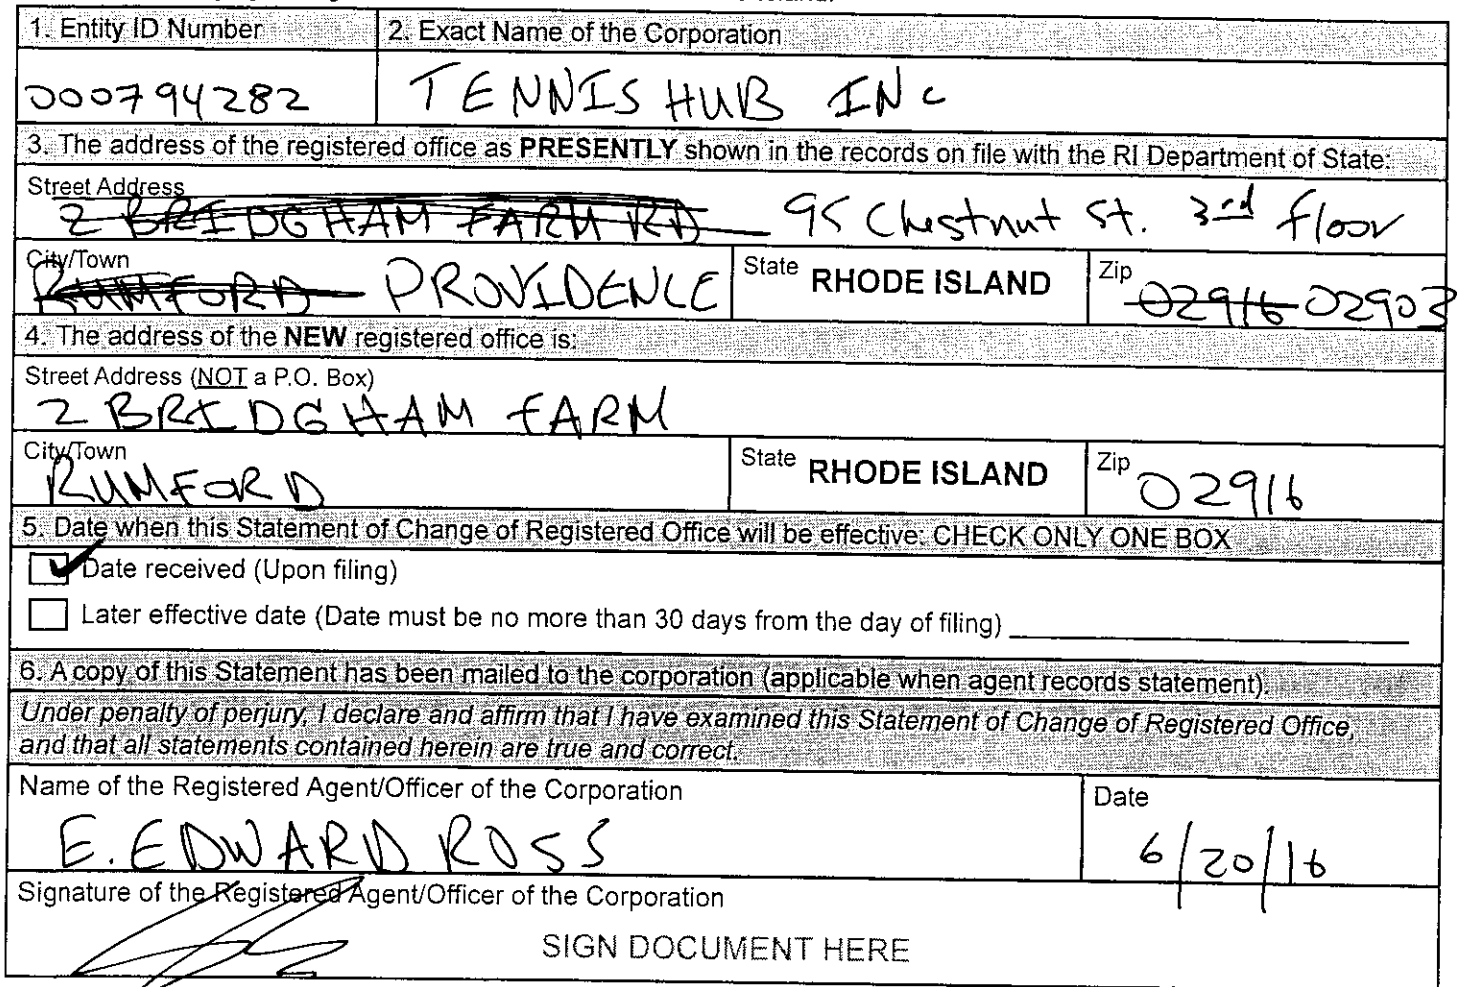 1. Entity ID Number 2. Exact Name of the Corporation
000794282 TENNIS HUB INC
3. The address of the registered office as PRESENTLY shown in the records on file with the RI Department of State:
Street Address
2 BRIDGHAM FARM RD 95 Chestnut St. 3rd floor
City/Town State RHODE ISLAND Zip
RUMFORD PROVIDENCE 02916 02903
4. The address of the NEW registered office is:
Street Address (NOT a P.O. Box)
2 BRIDGHAM FARM
City/Town State RHODE ISLAND Zip
RUMFORD 02916
5. Date when this Statement of Change of Registered Office will be effective: CHECK ONLY ONE BOX
Date received (Upon filing)
Later effective date (Date must be no more than 30 days from the day of filing)
6. A copy of this Statement has been mailed to the corporation (applicable when agent records statement).
Under penalty of perjury, I declare and affirm that I have examined this Statement of Change of Registered Office,
and that all statements contained herein are true and correct.
Name of the Registered Agent/Officer of the Corporation Date
E. EDWARD ROSS 6/20/16
Signature of the Registered Agent/Officer of the Corporation
SIGN DOCUMENT HERE